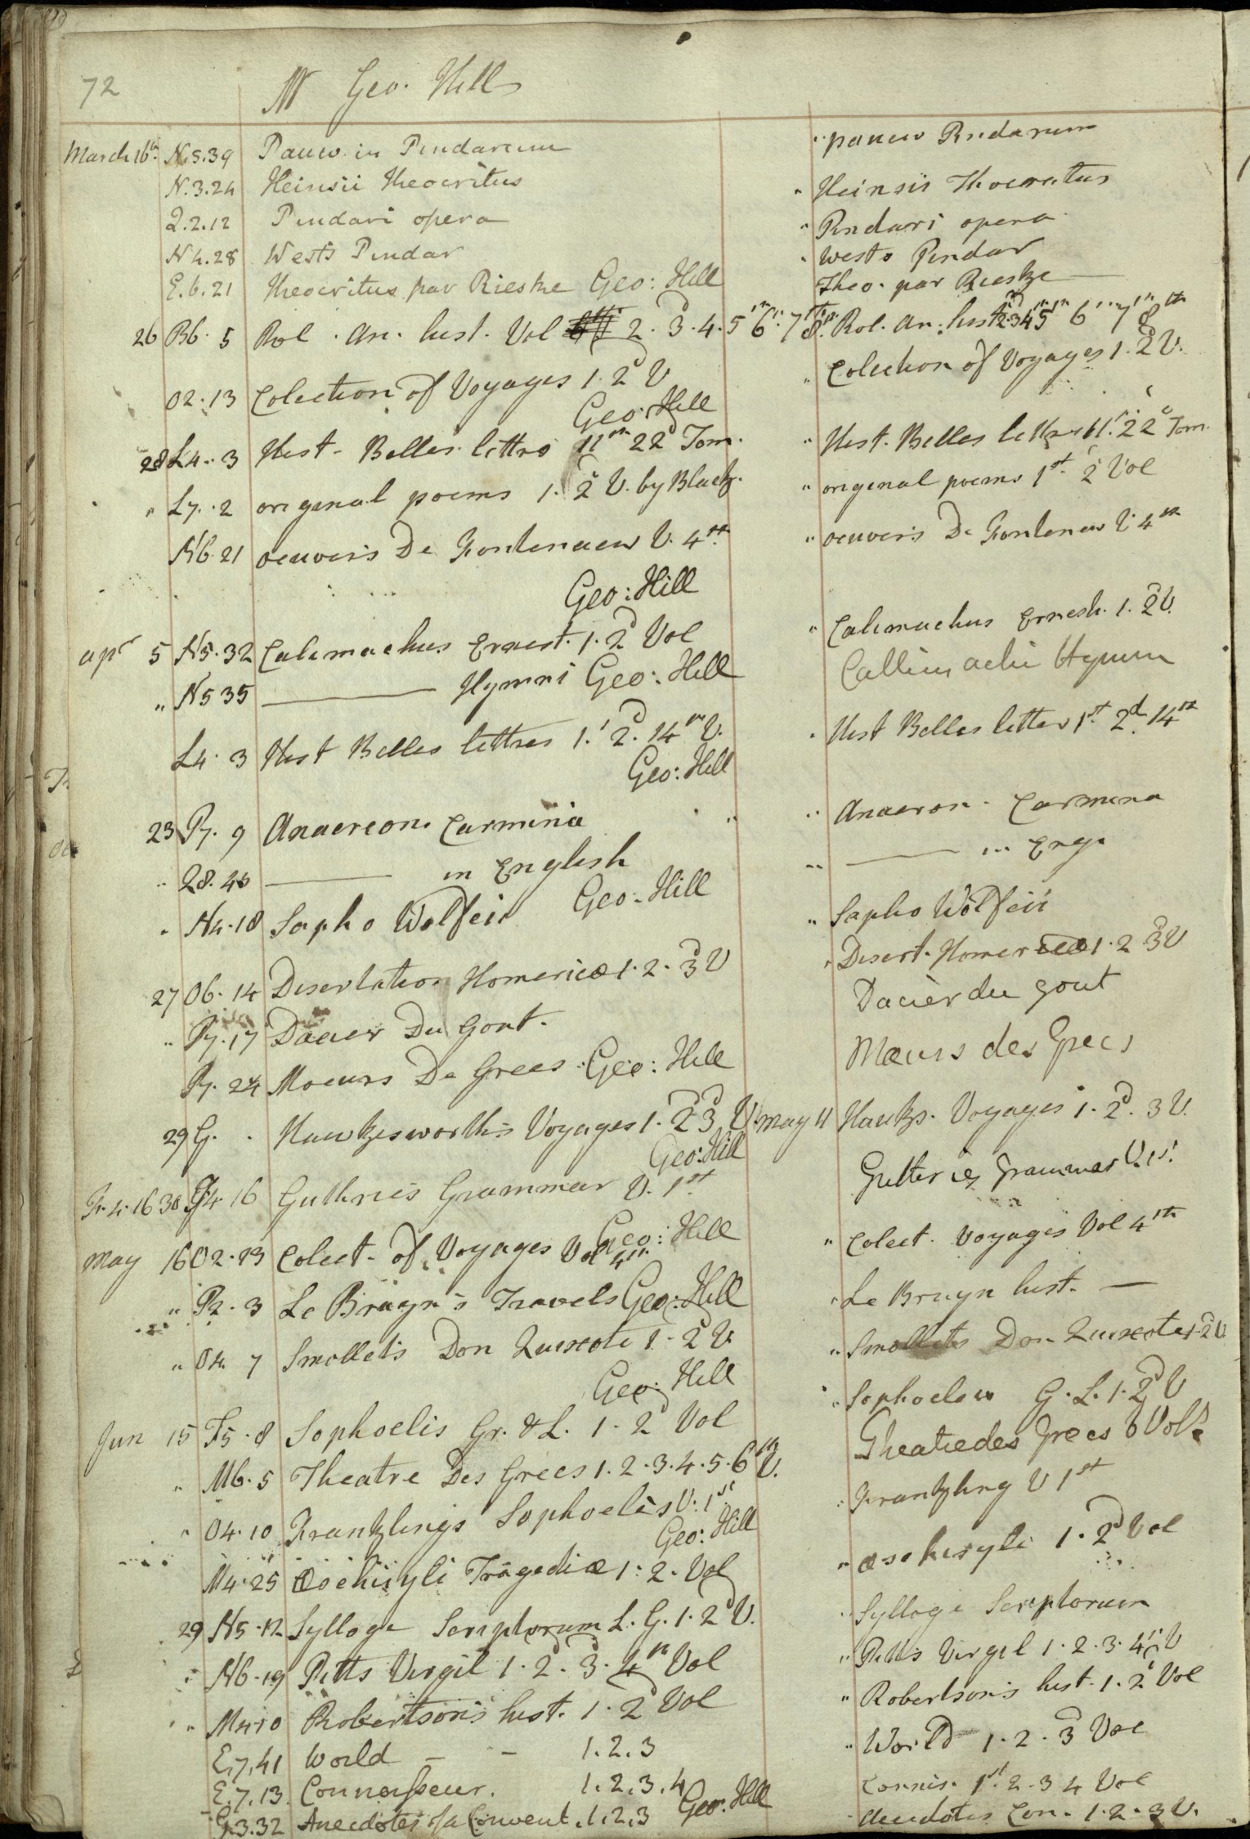 72 Mr Geo. Hill
March 16th N.5.39 Pauw in Pindarum " pauw Pindarum
N.3.24 Heinsii Theocritus " Heinsii Theocratus
Q.2.12 Pindari opera " Pindari opera
N4.28 West's Pindar " Wests Pindar
E.6.21 Theocritus par Rieske Geo: Hill Theo. par Rieske
26 B6.5 Rol. an. hist. Vol 2.3.4.5th 6th 7th 8th Rol. An. hist 2 3 4 5th 6th 7th 8th
O2.13 Colection of Voyages 1.2d V " Colection of Voyages 1.2d V.
Geo: Hill
28 L4.3 Hist. Belles lettrs 11th 22d Tom. " Hist. Belles lettrs 11. 22d Tom.
" L7.2 original poems 1.2d V. by Black. " original poems 1st 2d Vol
N6.21 oeuvris De Fontenaew V. 4th " oeuvris De Fontenew V. 4th
Geo: Hill
apr 5 N5.32 Calimachus Ernest. 1.2d Vol " Calimachus Ernesh. 1.2d V.
" N5 35 ——— Hymni Geo: Hill Callimachi Hymn
L4.3 Hist Belles lettres 1.' 2d. 14th V. " Hist Belles letter 1st 2d 14th
Geo: Hill
23 P7.9 Anacreons Carmina " Anacron. Carmina
" 28.40 ——— in English " ——— in Eng.
" N4.18 Sapho Wolfeii Geo: Hill " Sapho Wolfeii
27 O6.14 Disertation Homericæ 1.2.3d V " Disert. Homericæ 1.2 3d V
" P7.17 Dacier Du Gout. Dacier du gout
P7.24 Moeurs De Grees Geo: Hill Mœurs des Grecs
29 G. . Hawkesworth's Voyages 1.2d 3d V. May 11 Hawks. Voyages 1.2d. 3 V.
Geo: Hill
F.4.16 30 F4 16 Guthries Grammar V. 1st Gutteries Grammar V. 1st
Geo: Hill
May 16 O2.13 Colect. of Voyages Vol 4th " Colect. Voyages Vol 4th
" P2.3 Le Bruyn's Travels Geo: Hill " Le Bruyn hist. —
" O4 7 Smollet's Don Quixote 1.2d V. " Smollets Don Quixote 1.2d V.
Geo: Hill
Jun 15 F5.8 Sophoclis Gr. & L. 1.2d Vol " Sophoclew G.L. 1.2d V
" M6.5 Theatre Des Grees 1.2.3.4.5.6th V. Theatre des Grecs 6 Vols
" O4.10 Franklings Sophoclis V. 1st " Frankling V 1st
Geo: Hill
M4.25 Æschiyli Tragediæ 1.2. Vol " æschisyli 1.2d Vol
29 N5.12 Sylloge Scriptorum L.G. 1.2d V. " Sylloge Scriptorum
" N6.19 Pitts Virgil 1.2d.3d.4th Vol " Pitts Virgil 1.2.3.4th V
" M4.10 Robertson's hist. 1.2d Vol " Robertson's hist. 1.2d Vol
E.7.41 World - - 1.2.3 " World 1.2.3d Vol
E.7.13. Connoisseur. 1.2.3.4 Connis. 1st.2.3 4 Vol
G.3.32 Anecdotes of a Convent. 1.2.3 Geo. Hill Anecdotes Con. 1.2.3 V.